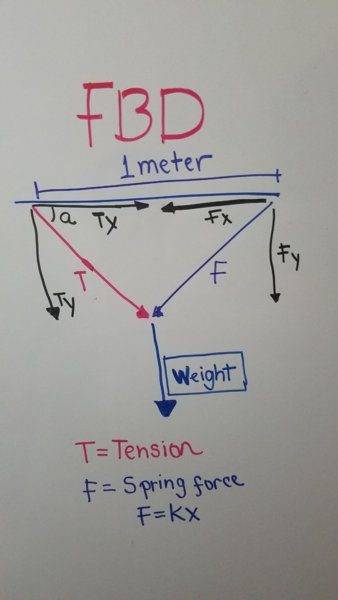 FBD
1 meter
a Tx Fx
Ty T F Fy
Weight
T = Tension
F = Spring force
F = Kx